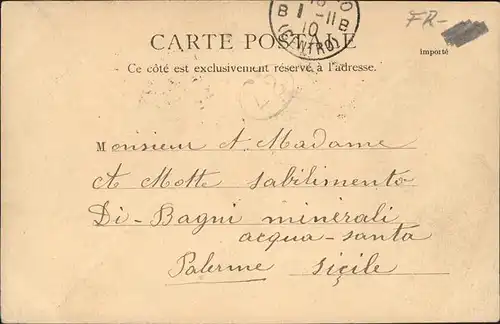 B 1-11 B
10
(CENTRO)
FR-
CARTE POSTALE
Importé
Ce côté est exclusivement réservé à l'adresse.
Monsieur et Madame
A Motte sabilimento
Di-Bagni minérali
acqua-santa
Palerme Siçile